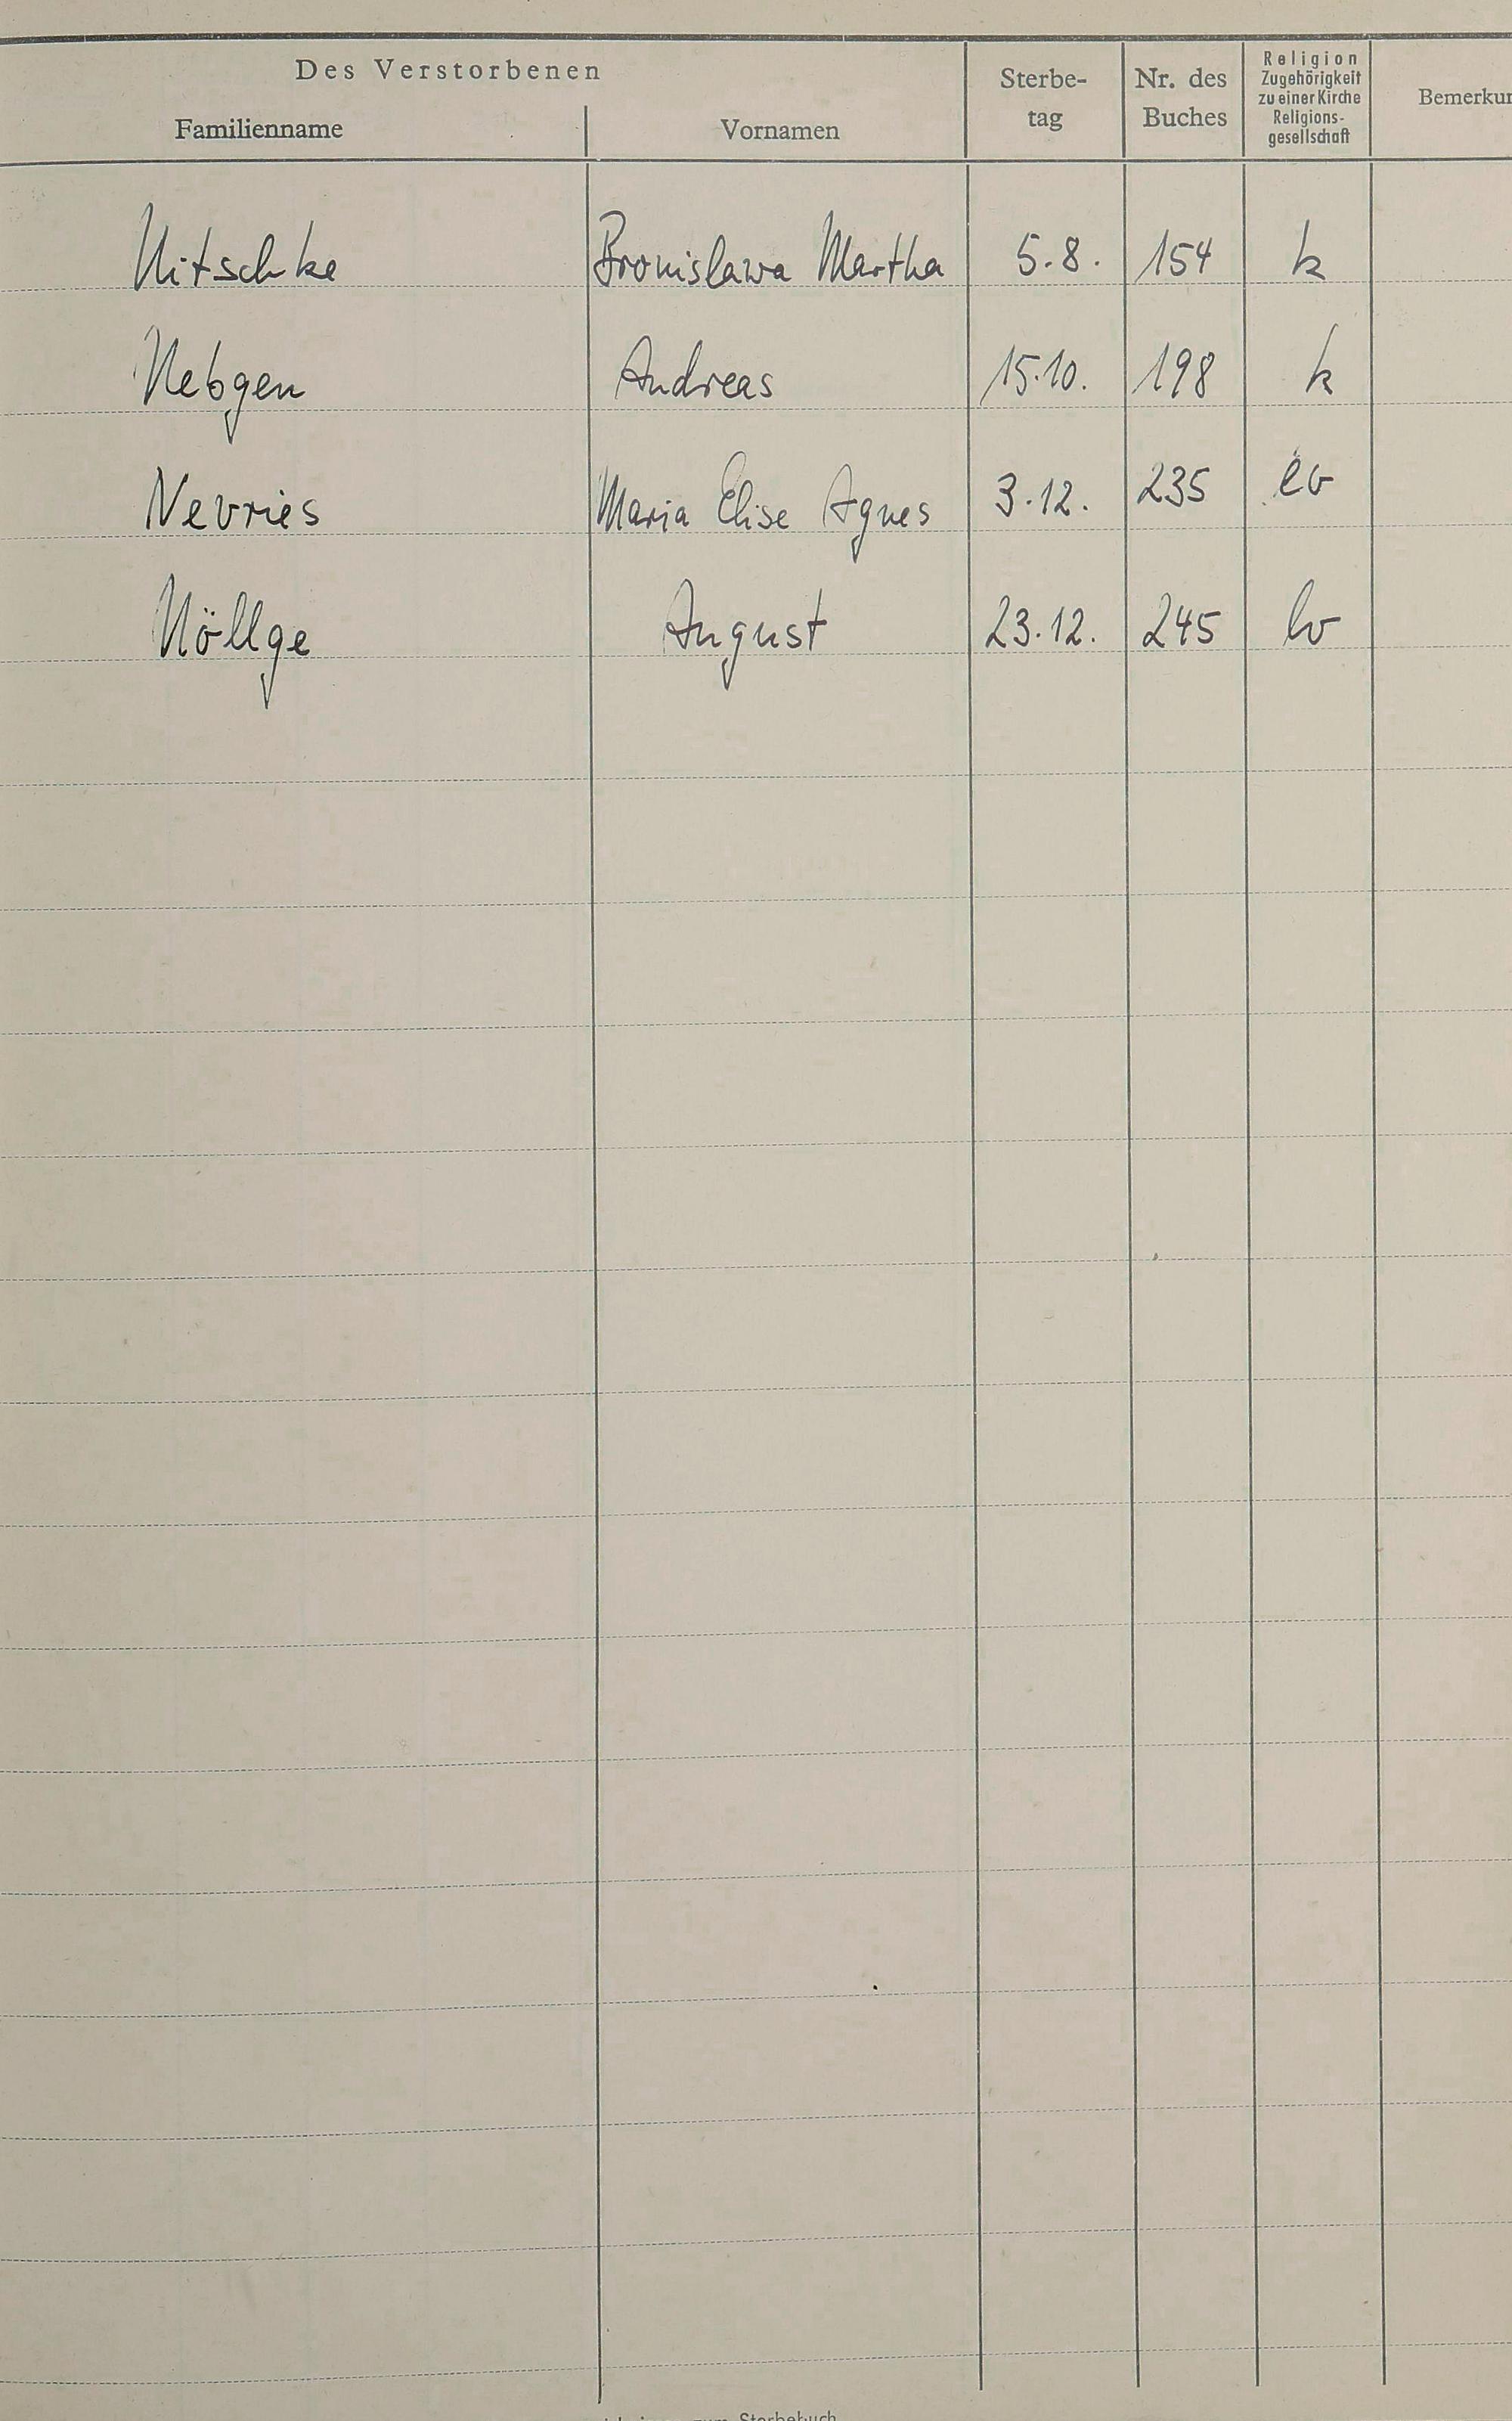 Des Verstorbenen
Familienname
Vornamen
Sterbe-
tag
Nr. des
Buches
Religion
Zugehörigkeit
zu einer Kirche
Religions-
gesellschaft
Bemerkun
Nitschke Bronislawa Martha 5.8. 154 k
Nebgen Andreas 15.10. 198 k
Nevries Maria Elise Agnes 3.12. 235 ev
Nöllge August 23.12. 245 ev
zum Sterbebuch